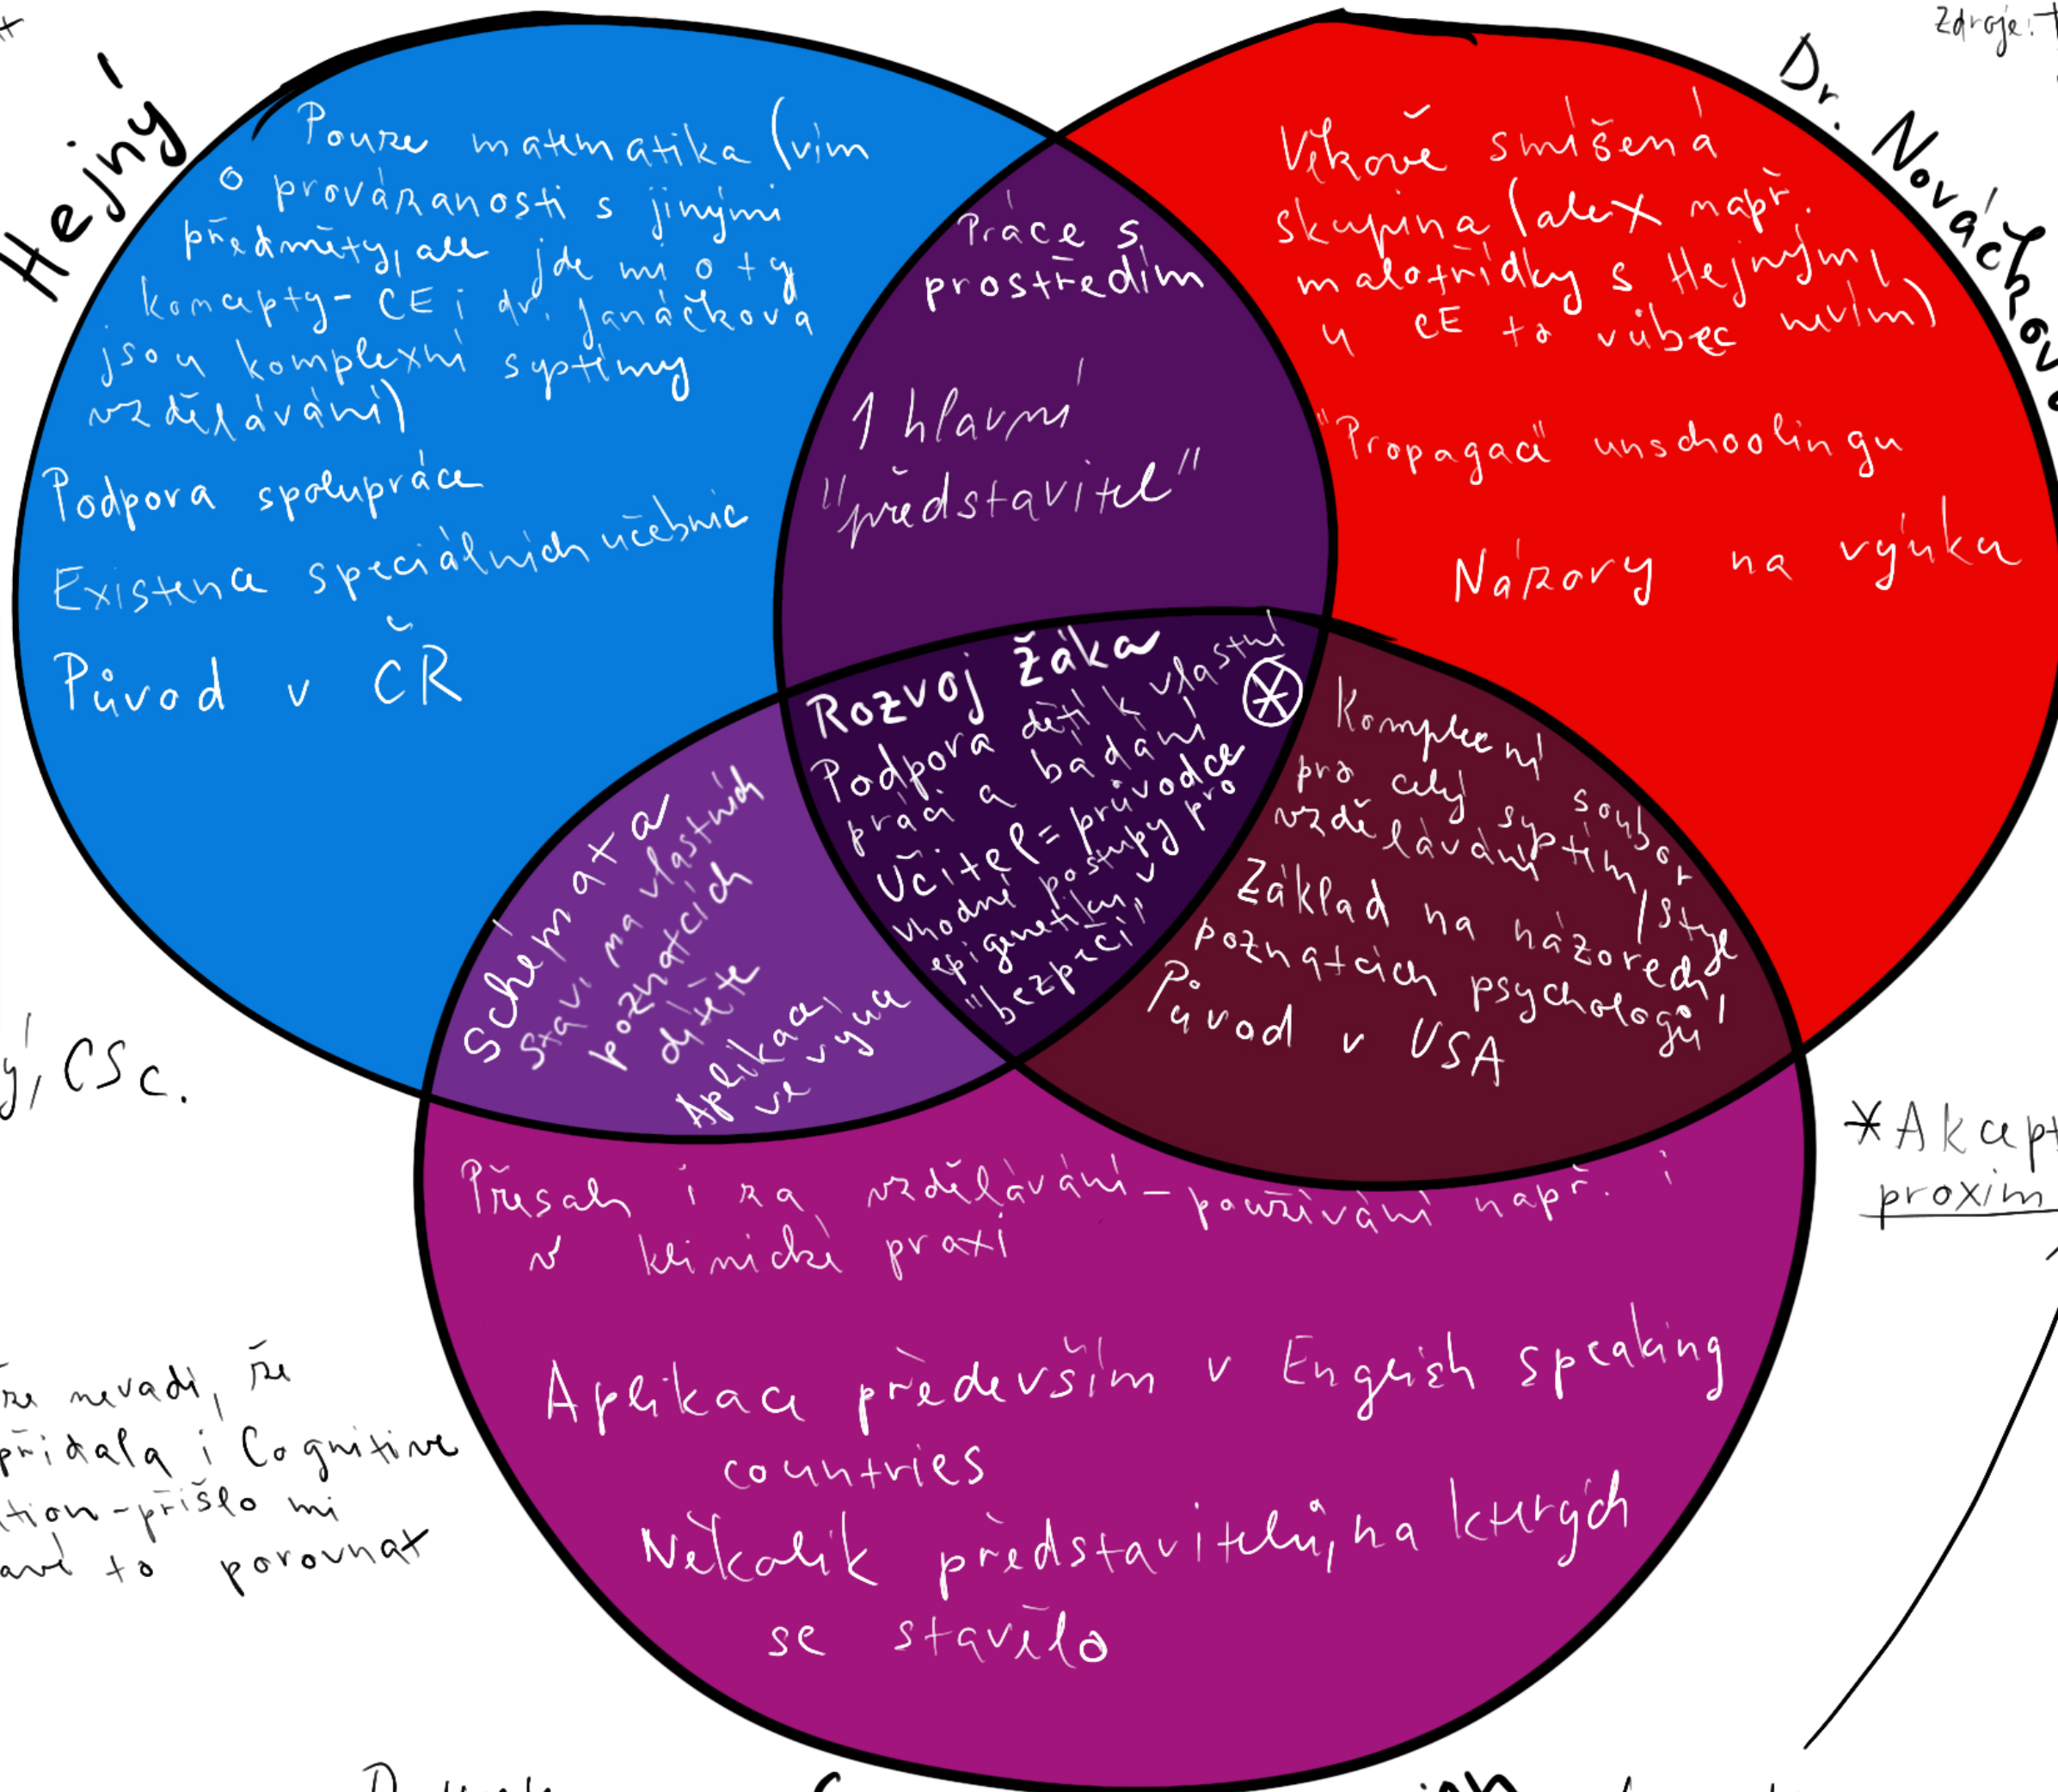 Zdroje:
Hejný
Dr. Nováčková
Pouze matematika (vím
o provázanosti s jinými
předměty, ale jde mi o ty
koncepty - CE i dr. Janáčková
jsou komplexní systémy
vzdělávání)
Podpora spolupráce
Existence speciálních učebnic
Původ v ČR
Práce s
prostředím
1 hlavní
"představitel"
Věkově smíšená
skupina (ale x např.
malotřídky s Hejným,
u CE to vůbec nevím)
"Propagace" unschoolingu
Názory na výuku
Rozvoj žáka
Podpora dětí k vlastní
práci a bádání
Učitel = průvodce
vhodné postupy pro
epigenetiku v
"bezpečí"
Schémata
Staví na vlastních
poznatcích
dítěte
Aplikace
ve výuce
Komplexní
pro celý soubor
vzdělávání
Základ na názorech
poznatcích psychologů
Původ v USA
ý, CSc.
*Akcept
proxim
Přesah i za vzdělávání - používání např. i
v klinické praxi
Aplikace především v English speaking
countries
Několik představitelů, na kterých
se stavělo
že nevadí, že
přidala i Cognitive
tion - přišlo mi
avé to porovnat